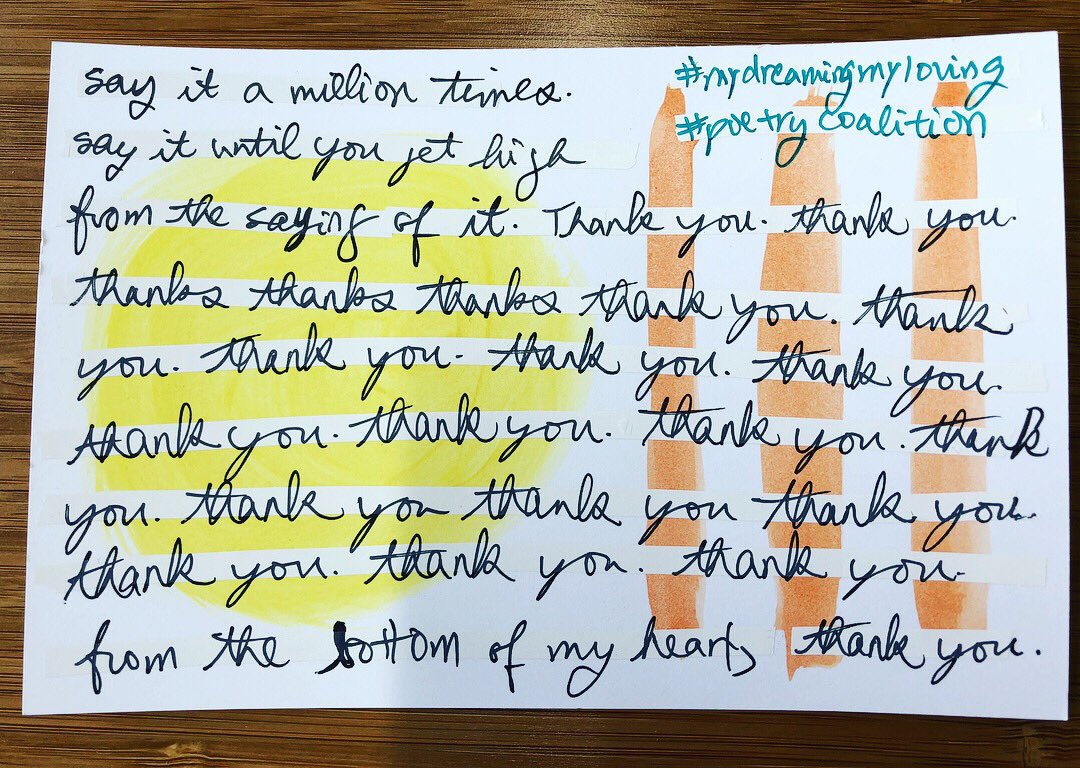 say it a million times.
#mydreamingmyloving
#poetrycoalition
say it until you get high
from the saying of it. Thank you. thank you.
thanks thanks thanks thank you. thank
you. thank you. thank you. thank you.
thank you. thank you. thank you. thank
you. thank you thank you thank you.
thank you. thank you. thank you.
from the bottom of my heart, thank you.